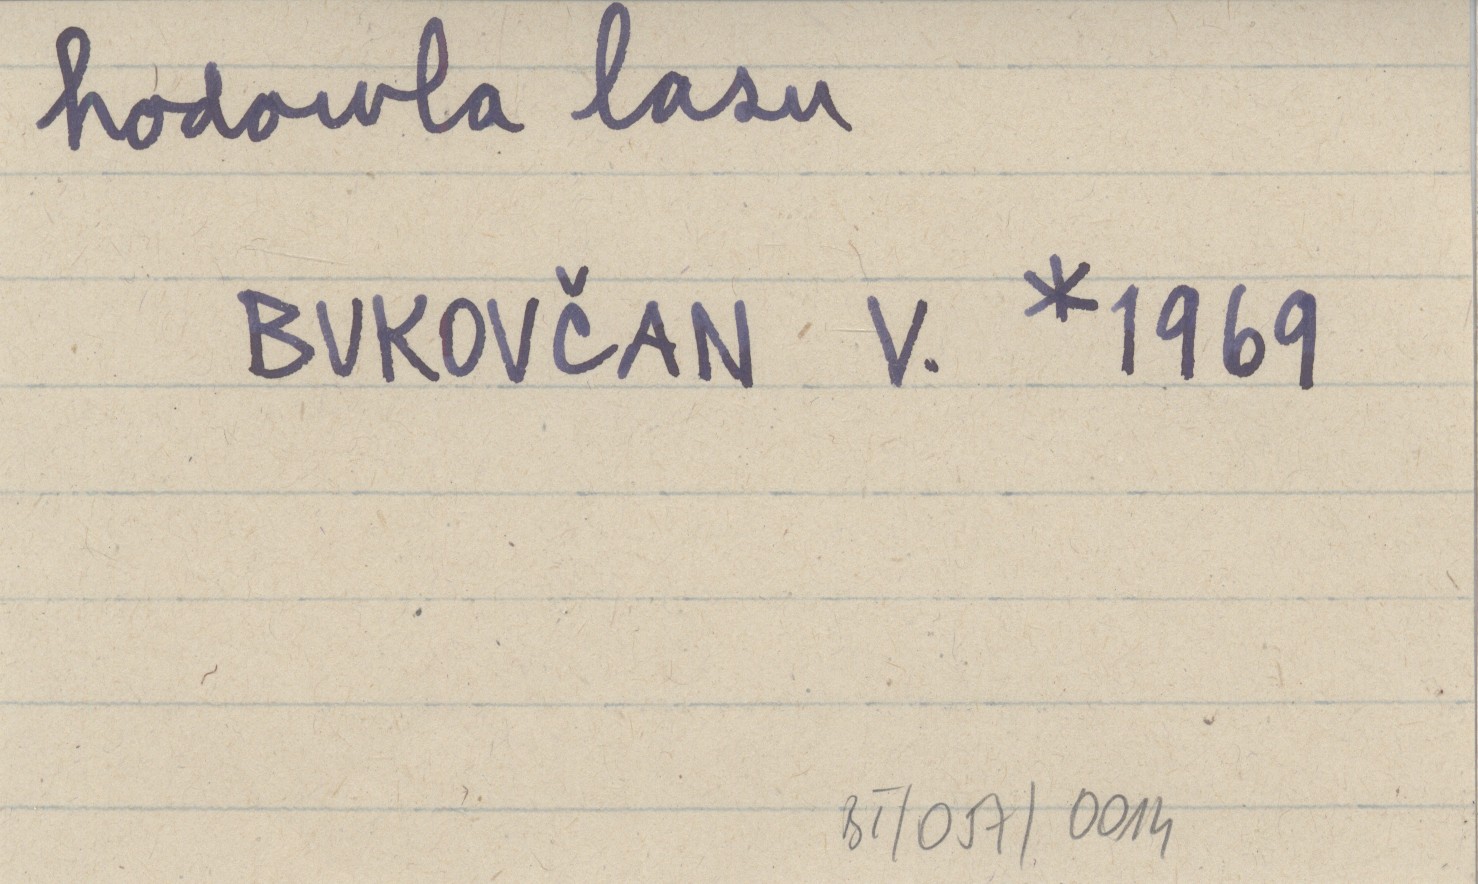 hodowla lasu
BUKOVČAN V. *1969
BI/057/0014